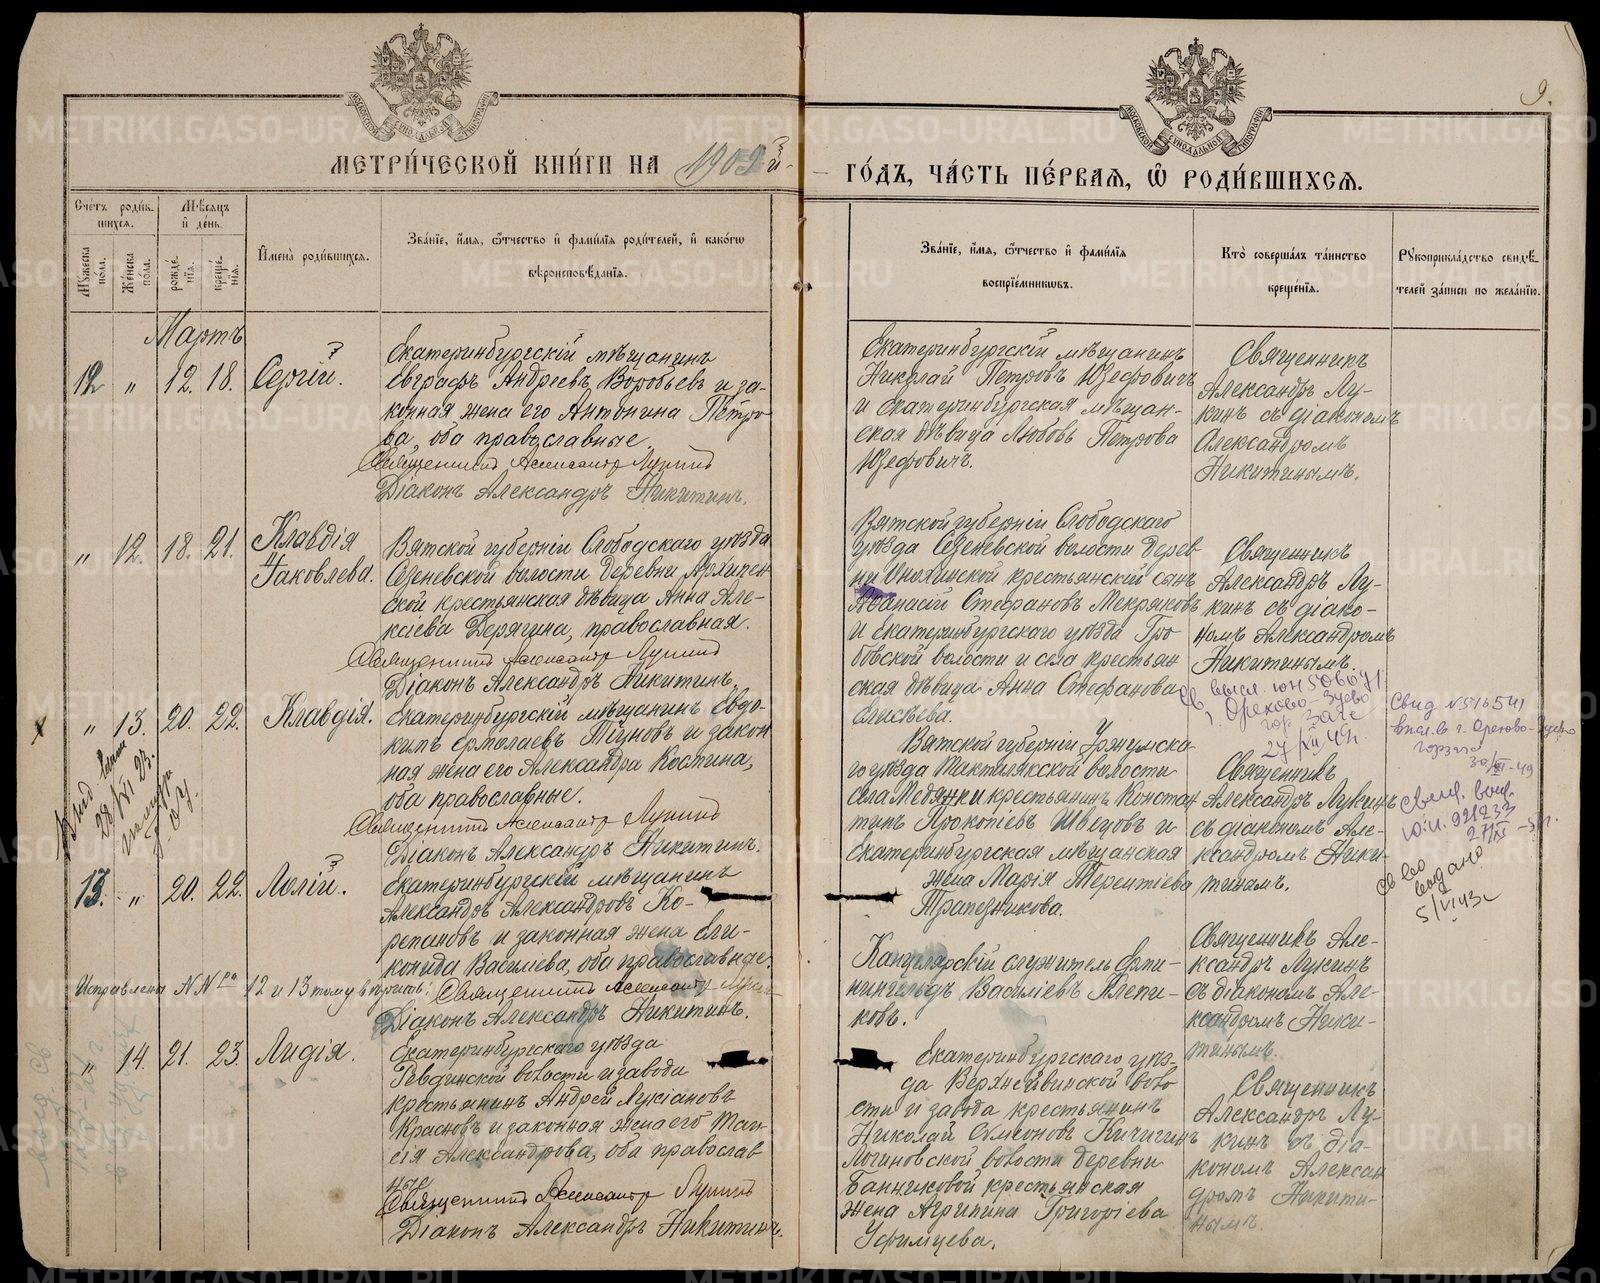 МЕТРИ́ЧЕСКОЙ КНИ́ГИ НА 1903й
ГО́ДЪ, ЧА́СТЬ ПЕ́РВАѦ, Ѽ РОДИ́ВШИХСѦ.
9.
Сче́тъ роди́вшихсѧ.
Мѣ́сѧцъ и де́нь.
Мꙋжеска пола.
Же́нска пола.
рожде́нїѧ.
креще́нїѧ.
И҆мена̀ роди́вшихсѧ.
Зва́нїе, и҆́мѧ, ѻ҆́тчество и҆ фами́лїѧ роди́телей, и҆ како́гѡ
вѣроисповѣ́данїѧ.
Зва́нїе, и҆́мѧ, ѻ҆́тчество и҆ фами́лїѧ
воспрїе́мникѡвъ.
Кто̀ соверша́лъ та́инство
креще́нїѧ.
Рꙋкоприкла́дство свидѣ́-
телей за́писи по жела́нїю.
Мартъ
12 " 12. 18. Сергій.
Екатеринбургскій мѣщанинъ
Евграфъ Андреевъ Воробьевъ и за-
конная жена его Антонина Петро-
ва, оба православные.
Священникъ Александръ Лукинъ
Діаконъ Александръ Никитинъ.
Екатеринбургскій мѣщанинъ
Николай Петровъ Юзефовичъ
и Екатеринбургская мѣщан-
ская дѣвица Любовь Петрова
Юзефовичъ.
Священникъ
Александръ Лу-
кинъ съ діакономъ
Александромъ
Никитинымъ.
" 12. 18. 21. Клавдія
Іаковлева.
Вятской губерніи Слободскаго уѣзда
Сезеневской волости деревни Архипен-
ской крестьянская дѣвица Анна Але-
ксіева Дерягина, православная.
Священникъ Александръ Лукинъ
Діаконъ Александръ Никитинъ.
Вятской губерніи Слободскаго
уѣзда Сезеневской волости дерев-
ни крестьянскій сынъ
Афанасій Стефановъ Мекряковъ
и Екатеринбургскаго уѣзда Гро-
бовской волости и села крестьян-
ская дѣвица Анна Стефанова
Елисѣева.
Священникъ
Александръ Лу-
кинъ съ діако-
номъ Александромъ
Никитинымъ.
" 13. 20. 22. Клавдія.
Екатеринбургскій мѣщанинъ Евдо-
кимъ Ермолаевъ Тіуновъ и закон-
ная жена его Александра Костина,
оба православные.
Священникъ Александръ Лукинъ
Діаконъ Александръ Никитинъ.
Вятской губерніи Уржумска-
го уѣзда волости
села Медянки крестьянинъ Констан-
тинъ Прокопіевъ Швецовъ и
Екатеринбургская мѣщанская
жена Марія Терентіева
Трапезникова.
Священникъ
Александръ Лукинъ
съ діакономъ Але-
ксандромъ Ники-
тинымъ.
г. Орехово-Зуево
27/XII 49 г.
Свид № 516541
г. Орехово-Зуево
30/XII-49
921233
Св во
выдано
5/VI 43 г
28/XI 23.
13. " 20. 22. Лоллій.
Екатеринбургскій мѣщанинъ
Александръ Александровъ Ко-
репановъ и законная жена Ели-
конида Василіева, оба православные.
Исправлены №№ ра 12 и 13 тому вѣримъ: Священникъ Александръ Лукинъ
Діаконъ Александръ Никитинъ.
Канцелярскій служитель
Василіевъ Алепи-
ковъ.
Священникъ Але-
ксандръ Лукинъ
съ діакономъ Але-
ксандромъ Ники-
тинымъ.
" 14. 21. 23. Лидія.
Екатеринбургскаго уѣзда
Ревдинской волости и завода
крестьянинъ Андрей Лукіановъ
Красновъ и законная жена его Таи-
сія Александрова, оба православ-
ные
Священникъ Александръ Лукинъ
Діаконъ Александръ Никитинъ.
Екатеринбургскаго уѣз-
да Верхнейвинской воло-
сти и завода крестьянинъ
Николай Симеоновъ Кичигинъ
Логиновской волости деревни
Банниковой крестьянская
жена Агрипина Григоріева
Уфимцева.
Священникъ
Александръ Лу-
кинъ съ діа-
кономъ Алексан-
дромъ Никити-
нымъ.
METRIKI.GASO-URAL.RU